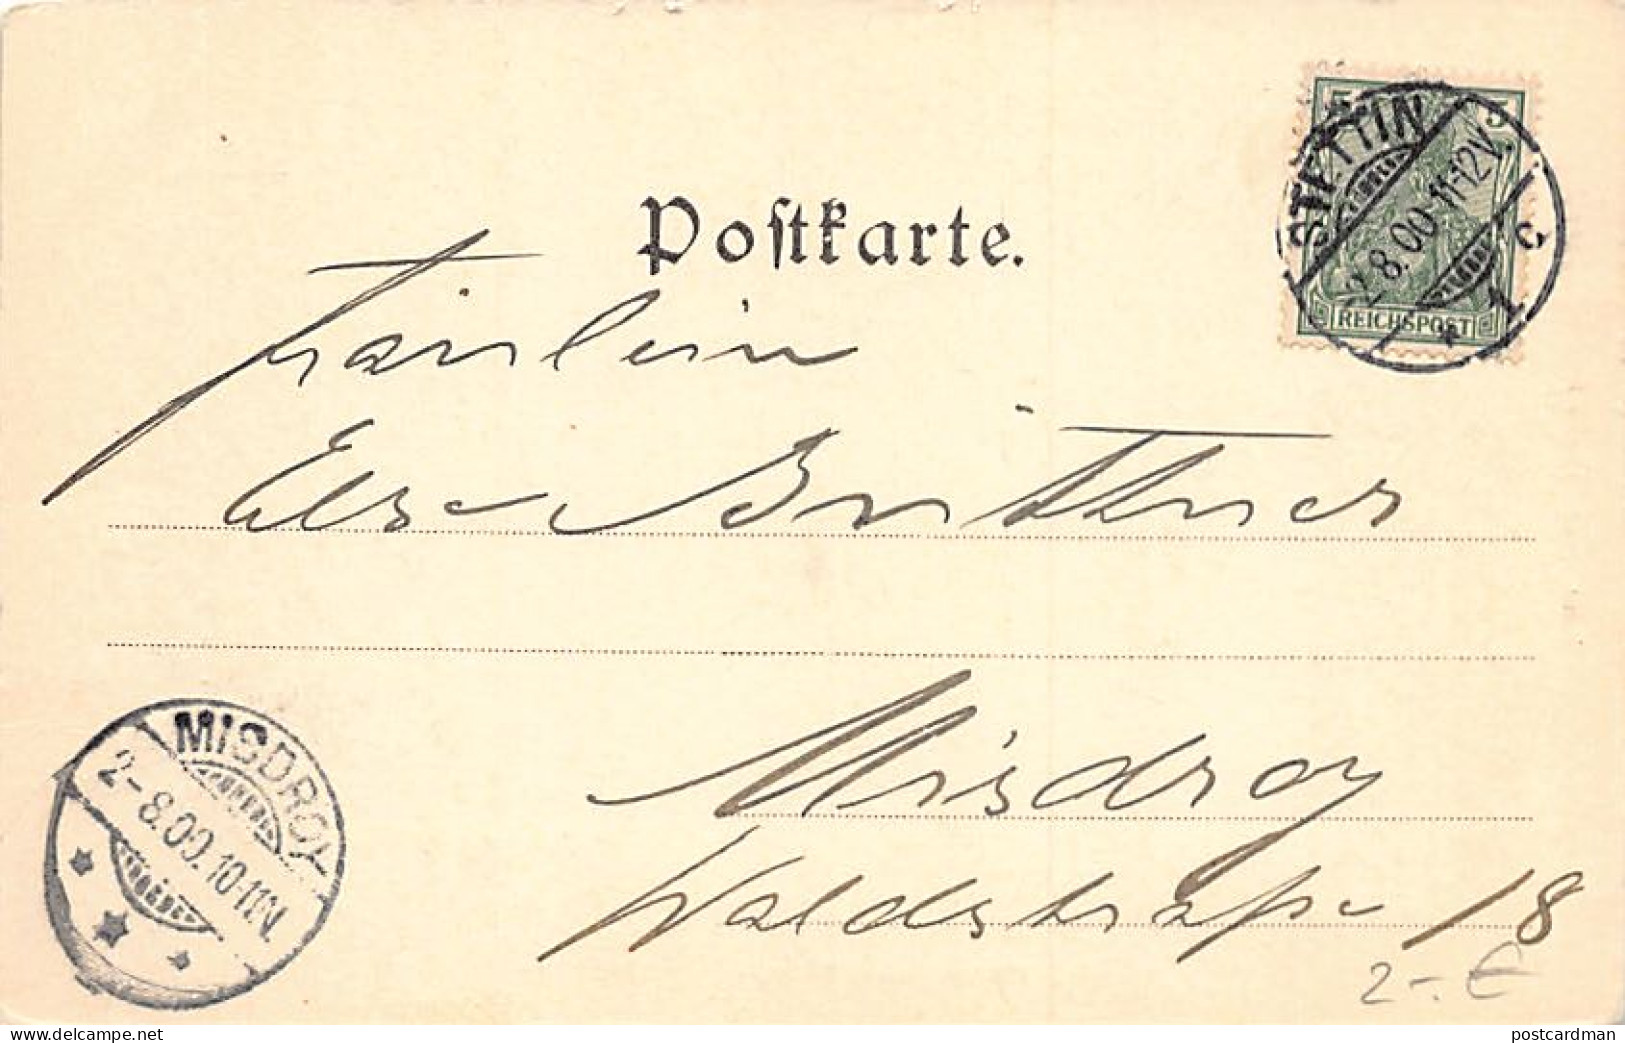 Postkarte.
5 5
STETTIN
2.8.00 11-12V.
* 1 c
REICHSPOST
Fräulein
Else Brüttner
Misdroy
Waldstraße 18
MISDROY
2-8.00. 10-11N.
2.- €
www.delcampe.net
postcardman